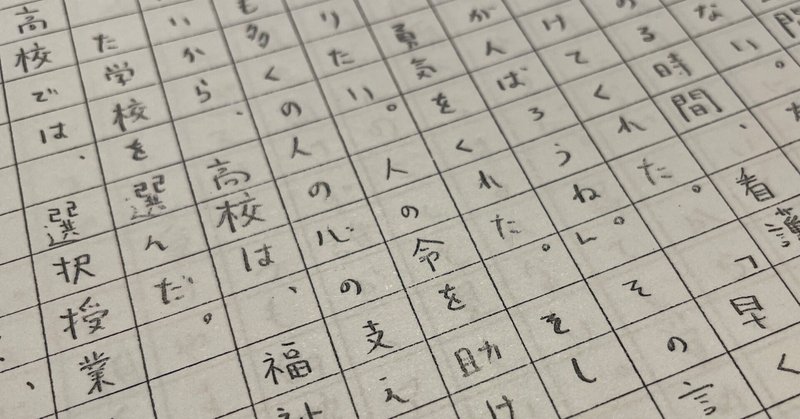 間
ない。
る時間、看護
けてくれた。「早く
がんばろうね」。その言
勇気をくれた。そし
りたい。人の命を助け
も多くの人の心の支え
いから、高校は、福祉
た学校を選んだ。
高校では、選択授業